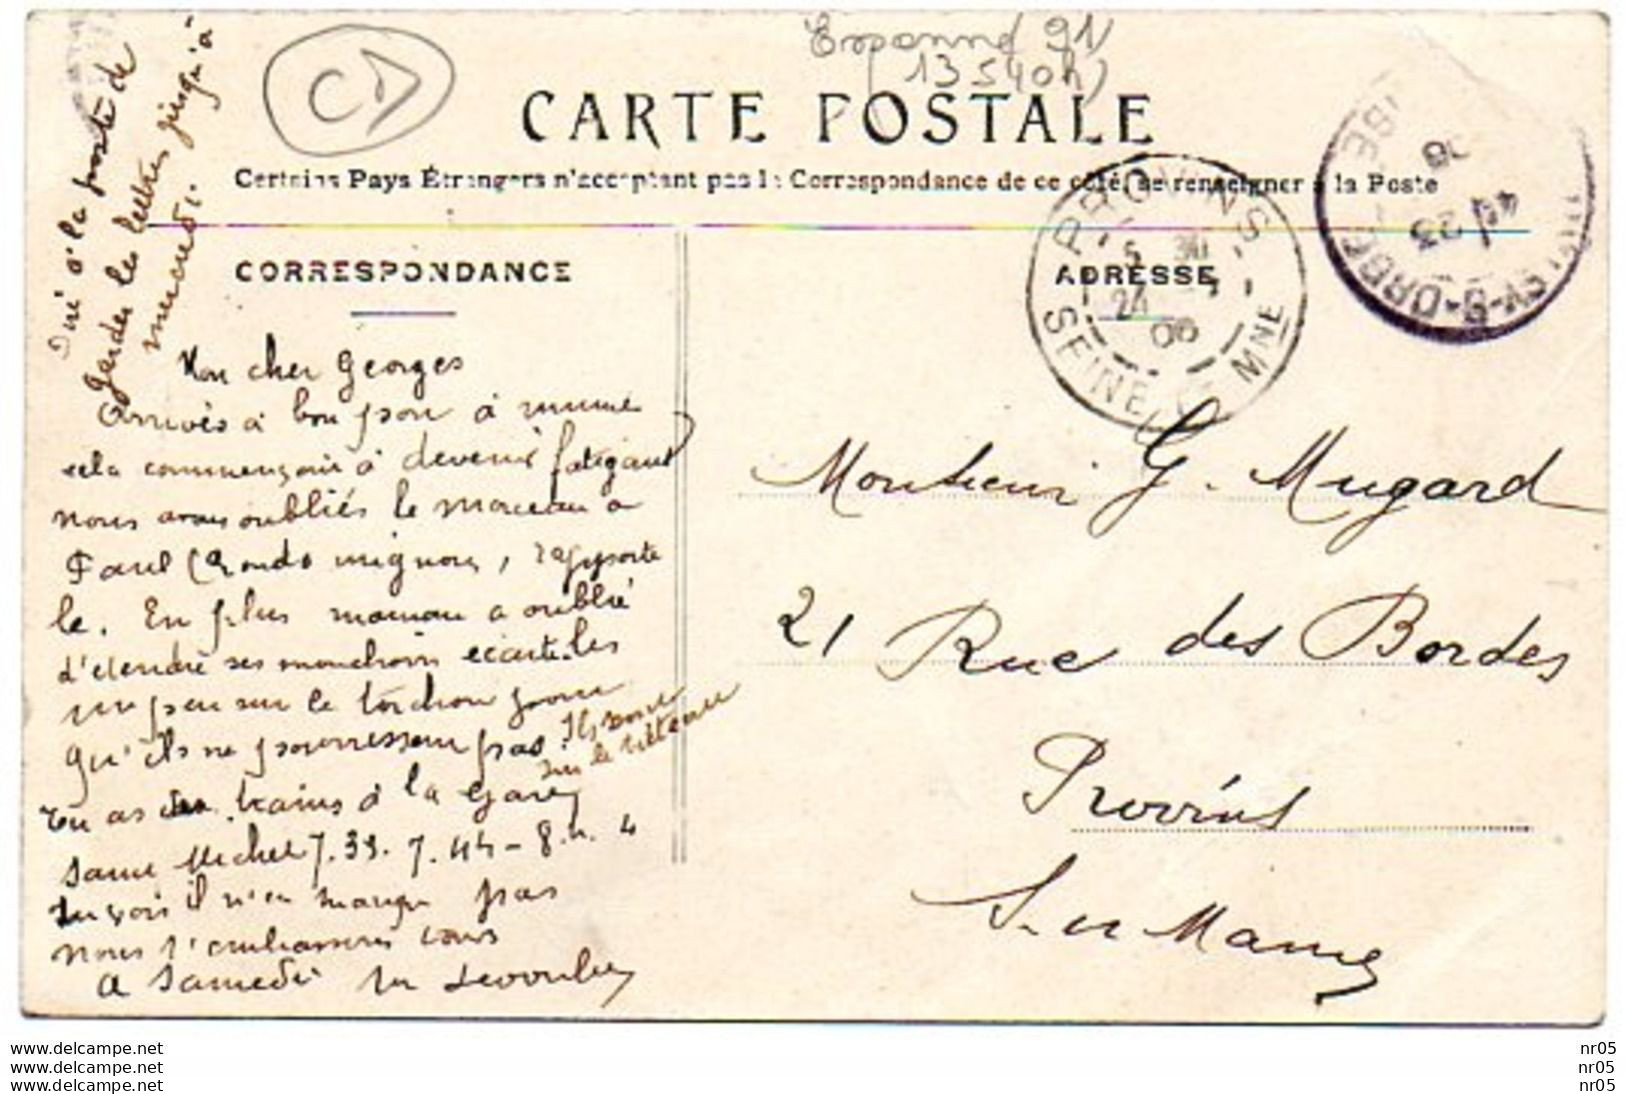 CARTE POSTALE
Certains Pays Étrangers n'acceptant pas la Correspondance de ce côté, se renseigner à la Poste
CORRESPONDANCE
ADRESSE
CD
91
13540h
PROVINS
5 30
24
06
SEINE ET MNE
23
à la poste de
garder les lettres jusqu'à
mercredi.
Mon cher Georges
Arrivés à bon port à
cela commençait à devenir fatigant
nous avons oubliés le morceau a
Paul (Rondo mignon, rapporte
le. En plus maman a oublié
d'étendre ses mouchoirs écarte les
un peu sur le torchon pour
qu'ils ne pourrissent pas. Ils sont
sur le
Tu as des trains à la Gare
Saint Michel 7.39. 7.44 - 8.h. 4
Tu vois il n'en manque pas
nous t'embrassons tous
A Samedi
Monsieur G. Mugard
21 Rue des Bordes
Provins
S. et Marne
www.delcampe.net
www.delcampe.net
www.delcampe.net
nr05
nr05
nr05